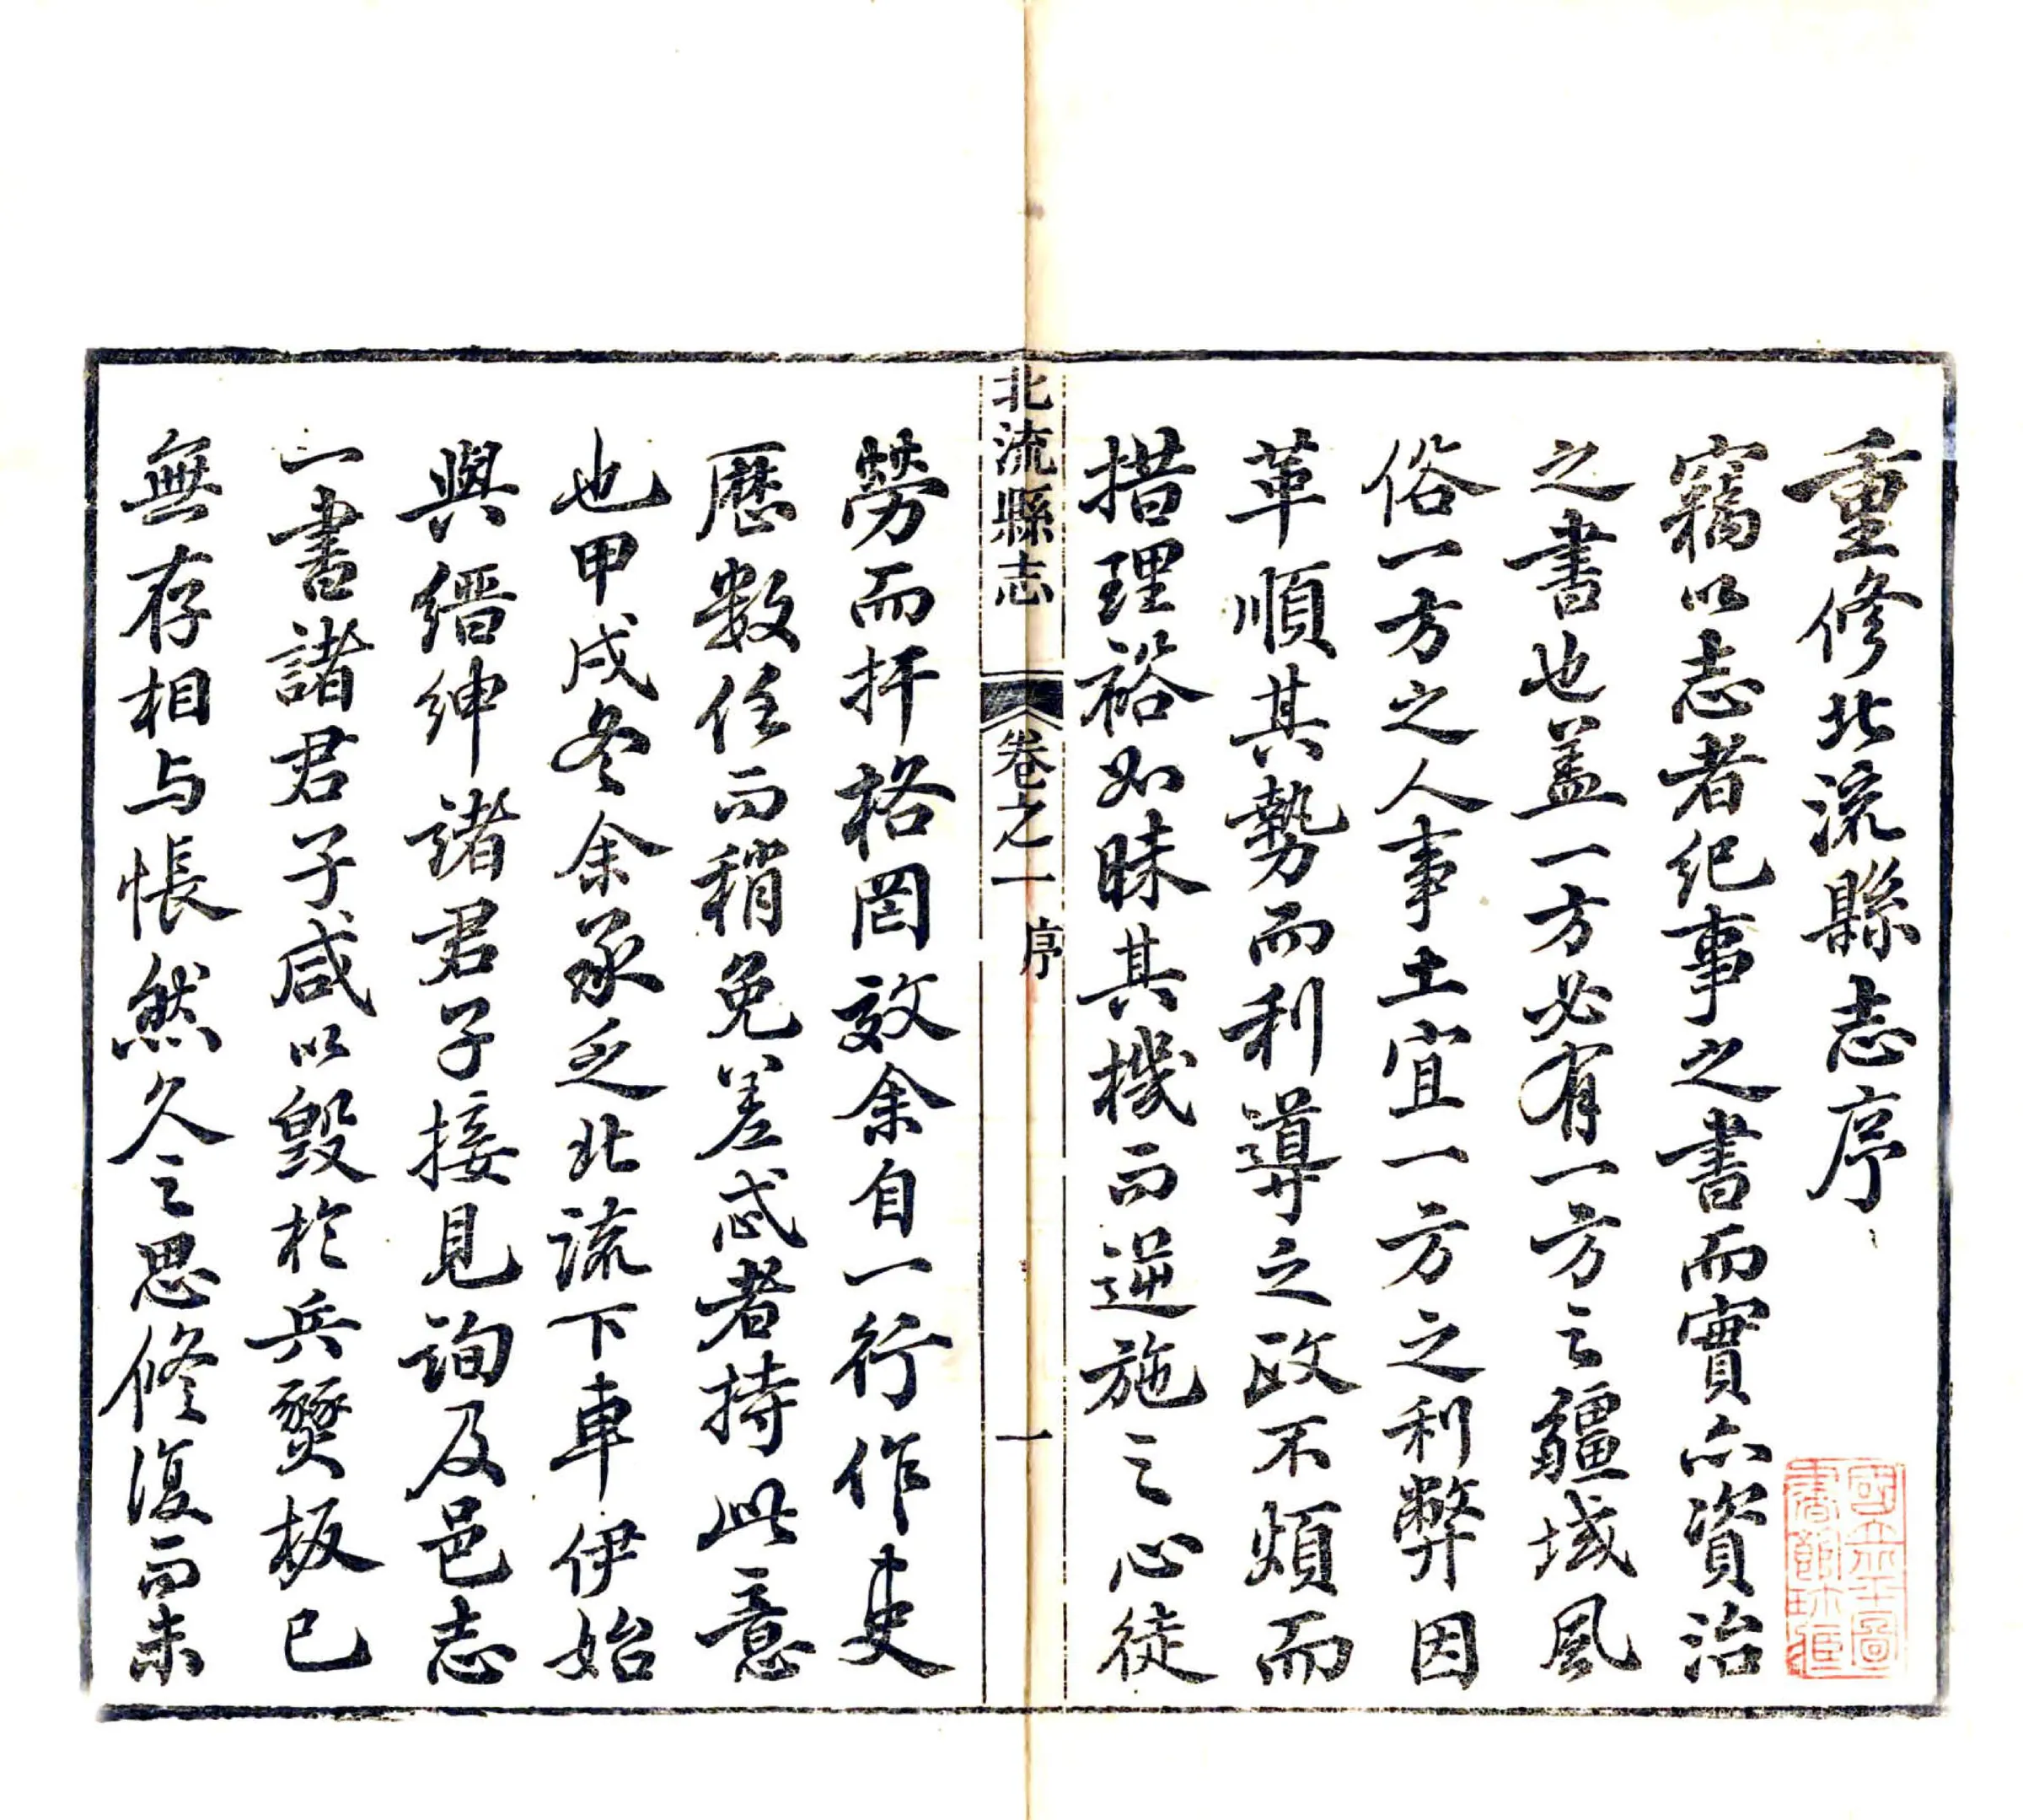 重修北流縣志序
竊以志者紀事之書而實亦資治
之書也盖一方必有一方之疆域風
俗一方之人事土宜一方之利弊因
革順其勢而利導之政不煩而
措理裕如昧其機而逆施之心徒
北流縣志
卷之一
序
一
勞而扞格罔效余自一行作吏
歷數任而稍免差忒者持此意
也甲戌冬余承乏北流下車伊始
與縉紳諸君子接見詢及邑志
一書諸君子咸以毀於兵燹板已
無存相与悵然久之思修復而未